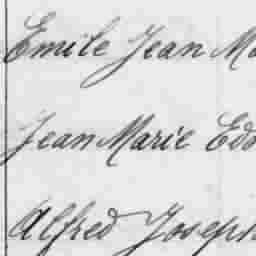 Emile Jean Ma
Jean Marie Edo
Alfred Joseph